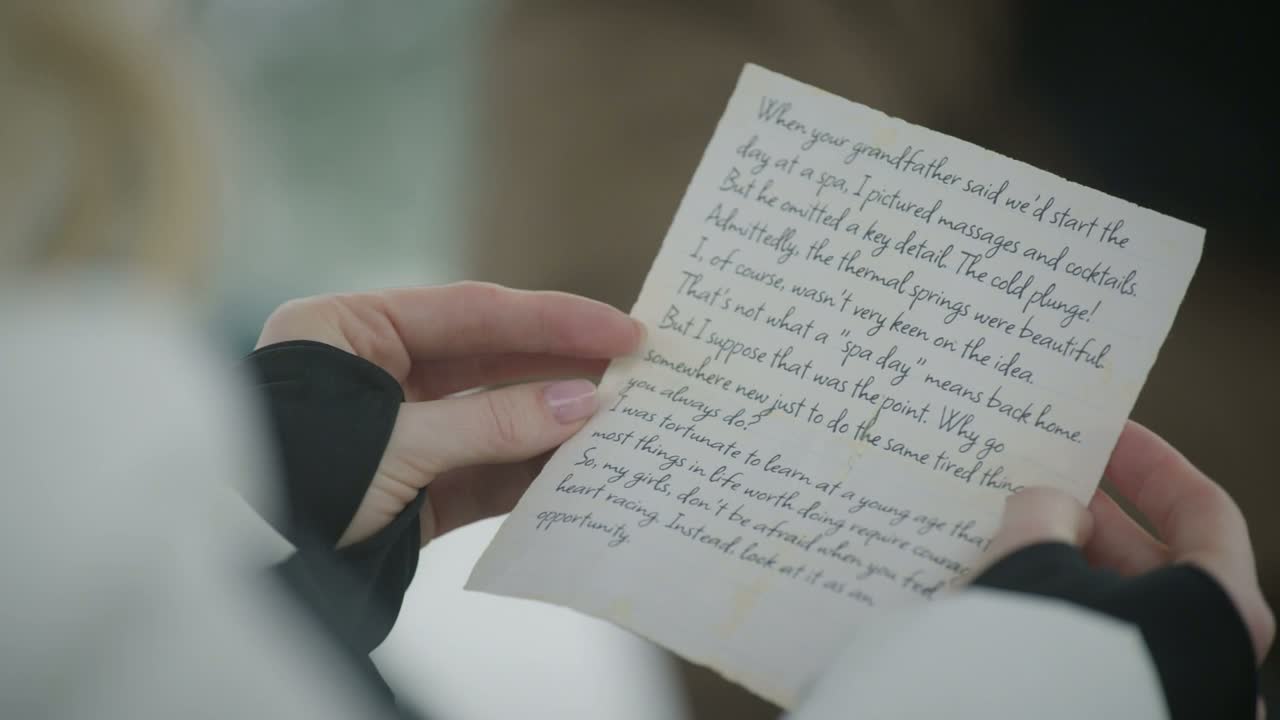 When your grandfather said we'd start the
day at a spa, I pictured massages and cocktails.
But he omitted a key detail. The cold plunge!
Admittedly, the thermal springs were beautiful.
I, of course, wasn't very keen on the idea.
That's not what a "spa day" means back home.
But I suppose that was the point. Why go
somewhere new just to do the same tired thing
you always do?
I was fortunate to learn at a young age that
most things in life worth doing require
So, my girls, don't be afraid when you feel
heart racing. Instead, look at it as an
opportunity.